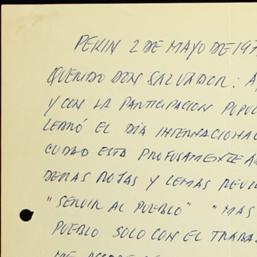 PEKIN 2 DE MAYO DE 197
QUERIDO DON SALVADOR: A
Y CON LA PARTICIPACION POPU
LEBRÓ EL DÍA INTERNACIONA
CUDAD ESTA PROFUSAMENTE A
DERAS ROJAS Y LEMAS REVOL
"SERVIR AL PUEBLO" "MAS
PUEBLO SOLO CON EL TRABA